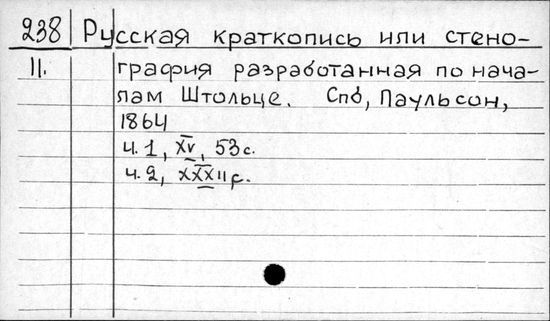 238 Русская краткопись или стено-
11. графия разработанная по нача-
лам Штольце. Спб, Паульсон,
1864
ч. 1, XV, 53 с.
ч. 2, XXXII с.